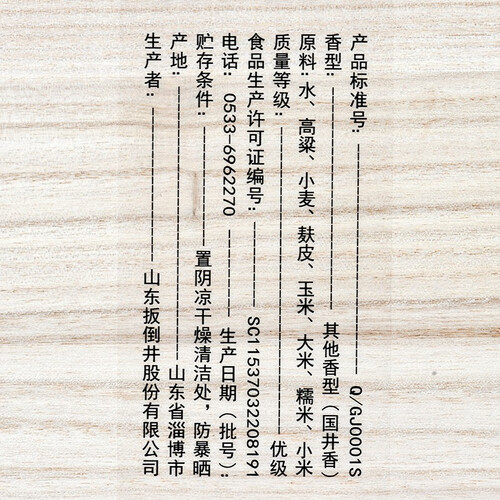 产品标准号:Q/GJ0001S
香型:其他香型(国井香)
原料:水、高粱、小麦、麸皮、玉米、大米、糯米、小米
质量等级:优级
食品生产许可证编号:SC11537032208191
电话:0533-6962270 生产日期(批号):
贮存条件:置阴凉干燥清洁处,防暴晒
产地:山东省淄博市
生产者:山东扳倒井股份有限公司